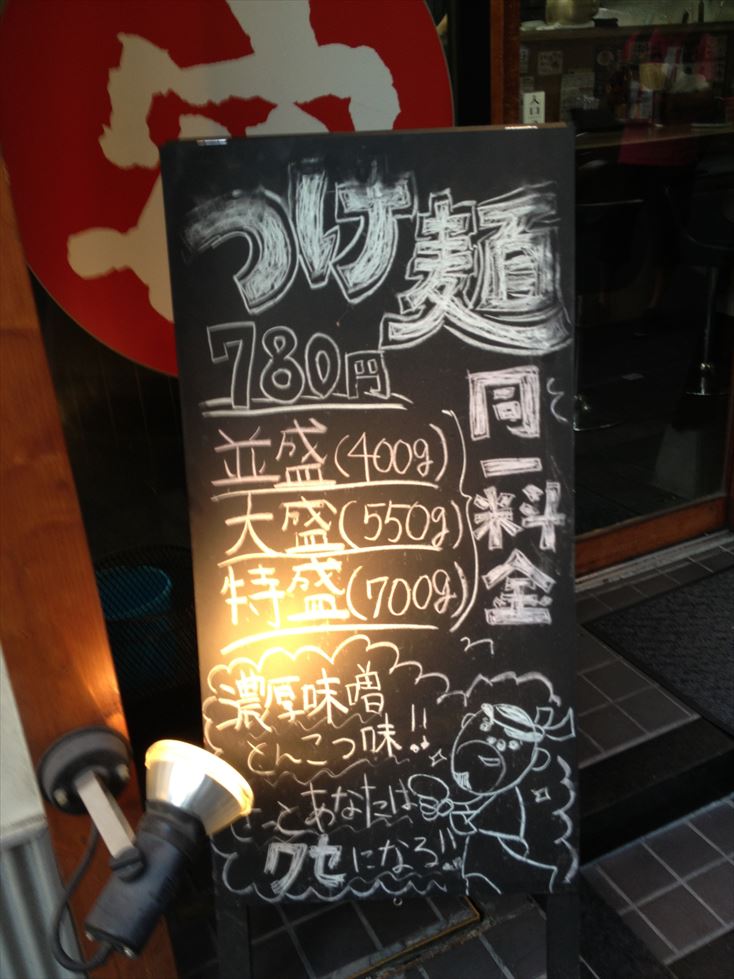 つけ麺
780円
並盛(400g)
大盛(550g)
特盛(700g)
同一料金
濃厚味噌
とんこつ味!!
きっとあなたは
クセになろ!!
入口